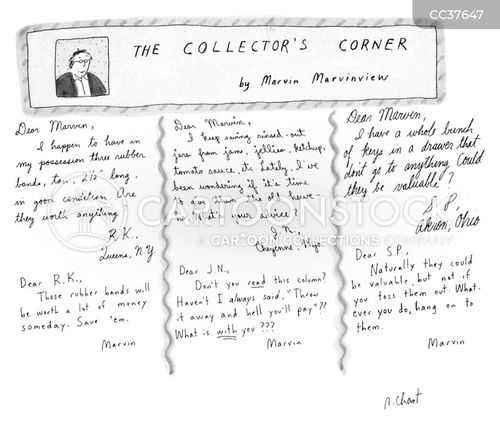 CC37647
THE COLLECTOR'S CORNER
by Marvin Marvinview
Dear Marvin,
I happen to have in
my possession three rubber
bands, tan, 2½" long.
in good condition. Are
they worth anything
R.K.,
N.Y.
Dear R.K.,
Those rubber bands will
be worth a lot of money
someday. Save 'em.
Marvin
Dear Marvin,
I keep saving rinsed-out
jars from jams, jellies, ketchup,
tomato sauce, etc. Lately, I've
been wondering if it's time
to give them the ol' heave-
What's your advice?
J.N.,
Cheyenne, Wyo.
Dear J.N.,
Don't you read this column?
Haven't I always said, "Throw
it away and hell you'll pay"??
What is with you???
Marvin
Dear Marvin,
I have a whole bunch
of keys in a drawer that
don't go to anything. Could
they be valuable?
S.P.,
Akron, Ohio
Dear S.P.,
Naturally they could
be valuable, but not if
you toss them out. What-
ever you do, hang on to
them.
Marvin
R. Chast
CARTOONSTOCK
CARTOON COLLECTIONS COMPANY